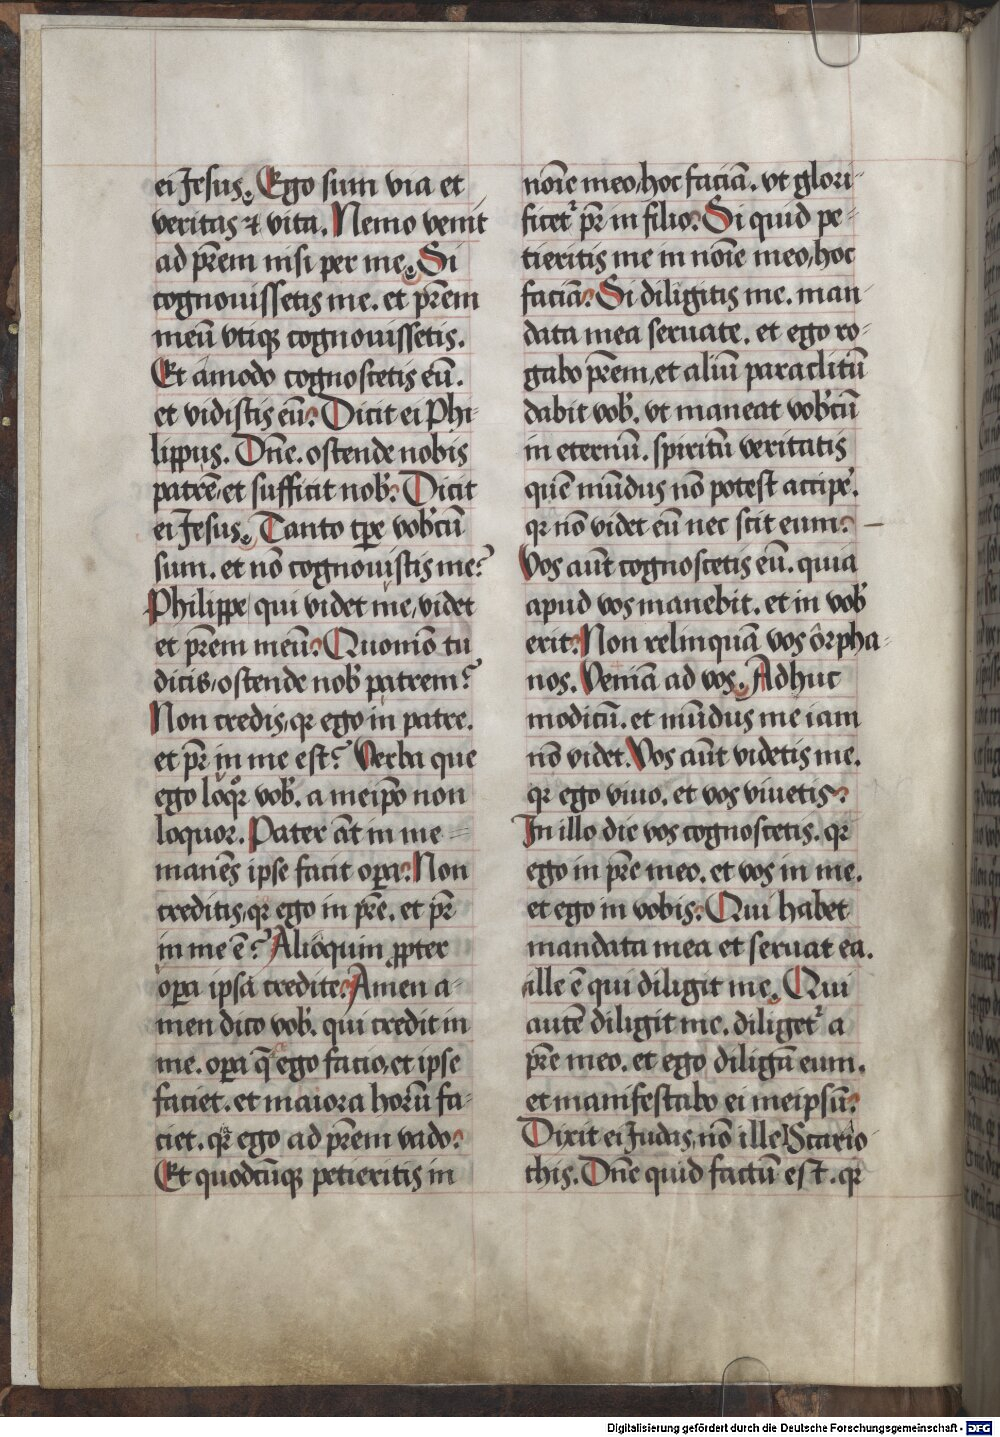 ei Jesus. Ego sum via et
veritas ⁊ vita. Nemo venit
ad p̄rem nisi per me. Si
cognouissetis me. et p̄rem
meū vtiqꝫ cognouissetis.
Et ámodo cognoscetis eū.
et vidistis eū. Dicit ei Phi-
lippus. Dn̄e. ostende nobis
patrē, et sufficit nob̓. Dicit
ei Jesus. Tanto tꝑe vob̓cū
sum. et nō cognouistis me?
Philippe, qui videt me, videt
et p̄rem meū. Quomō tu
dicis, ostende nob̓ patrem?
Non credis, qꝛ ego in patre.
et pr̄ in me est? Verba que
ego loqr̊ vob̓. a meip̄o non
loquor. Pater āt in me =
manēs ipse facit oꝑa. Non
creditis, qꝛ ego in p̄re. et pr̄
in me ē? Alióquin ꝓpter
oꝑa ipsa credite. Amen a-
men dico vob̓. qui credit in
me. oꝑa q̄ ego facio, et ipse
faciet. et maiora horū fa-
ciet. qꝛ ego ad p̄rem vado.
Et quodcūqꝫ petieritis in
nōie meo, hoc faciā. vt glori-
ficetᷣ pr̄ in filio. Si quid pe=
tieritis me in nōie meo, hoc
faciā. Si diligitis me. man-
data mea seruate. et ego ro-
gabo p̄rem, et aliū paraclitū
dabit vob̓. vt maneat vob̓cū
in eternū. spiritū veritatis
quē mūdus nō potest accipe̓.
qꝛ nō videt eū nec scit eum. –
Vos aūt cognoscetis eū. quia
apud vos manebit. et in vob̓
erit. Non relinquā vos ôrpha-
nos. Veniā ad vos. Adhuc
modicū. et mūdus me iam
nō videt. Vos aūt videtis me.
qꝛ ego viuo. et vos viuetis.
In illo die vos cognoscetis. qꝛ
ego in p̄re meo. et vos in me.
et ego in vobis. Qui habet
mandata mea et seruat ea.
ille ē qui diligit me. Qui
autē diligit me. diligetᷣ a
p̄re meo. et ego diligā eum.
et manifestabo ei meipsū.
Dixit ei Judas, nō ille Scario
this. Dn̄e quid factū est. qꝛ
Digitalisierung gefördert durch die Deutsche Forschungsgemeinschaft - DFG